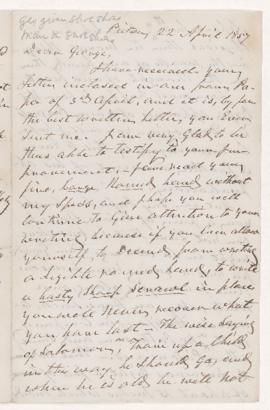 22 April 1857
Dear George,
I have received your
letter enclosed in one from Pa-
pa of 3rd April, and it is, by far
the best written letter, you ever
sent me. I am very glad to be
thus able to testify to your im-
provement. I can read your
fine, large round hand without
my specs, and I hope you will
continue to give attention to your
writing because if you once allow
yourself to descend from writing
a legible round hand, to write
a hasty scrawl in place
you will never recover what
you have lost. The wise saying
of Solomon, "Train up a child
in the way he should go, and
when he is old he will not